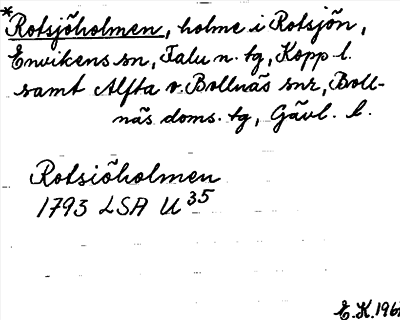 *Rotsjöholmen, holme i Rotsjön,
Envikens sn, Falu n. tg, Kopp. l.
samt Alfta o. Bollnäs snr, Boll-
näs doms. tg, Gävl. l.
Rotsiöholmen
1793 LSA U 35
E.K.